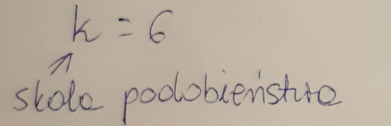 k = 6
skala podobieństwa